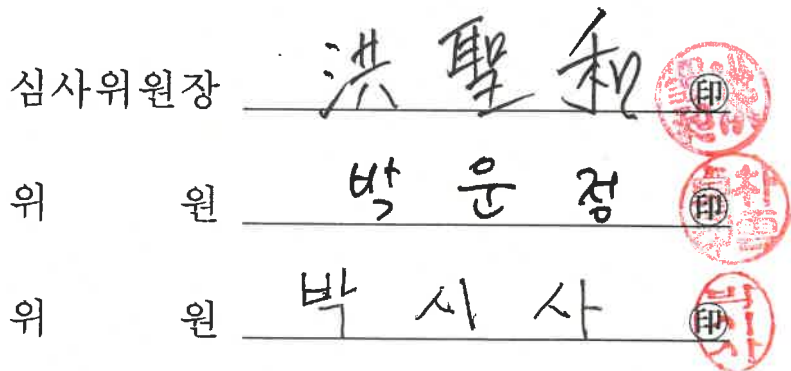 심사위원장 洪 聖 和 ㊞
위 원 박 운 정 ㊞
위 원 박 시 사 ㊞